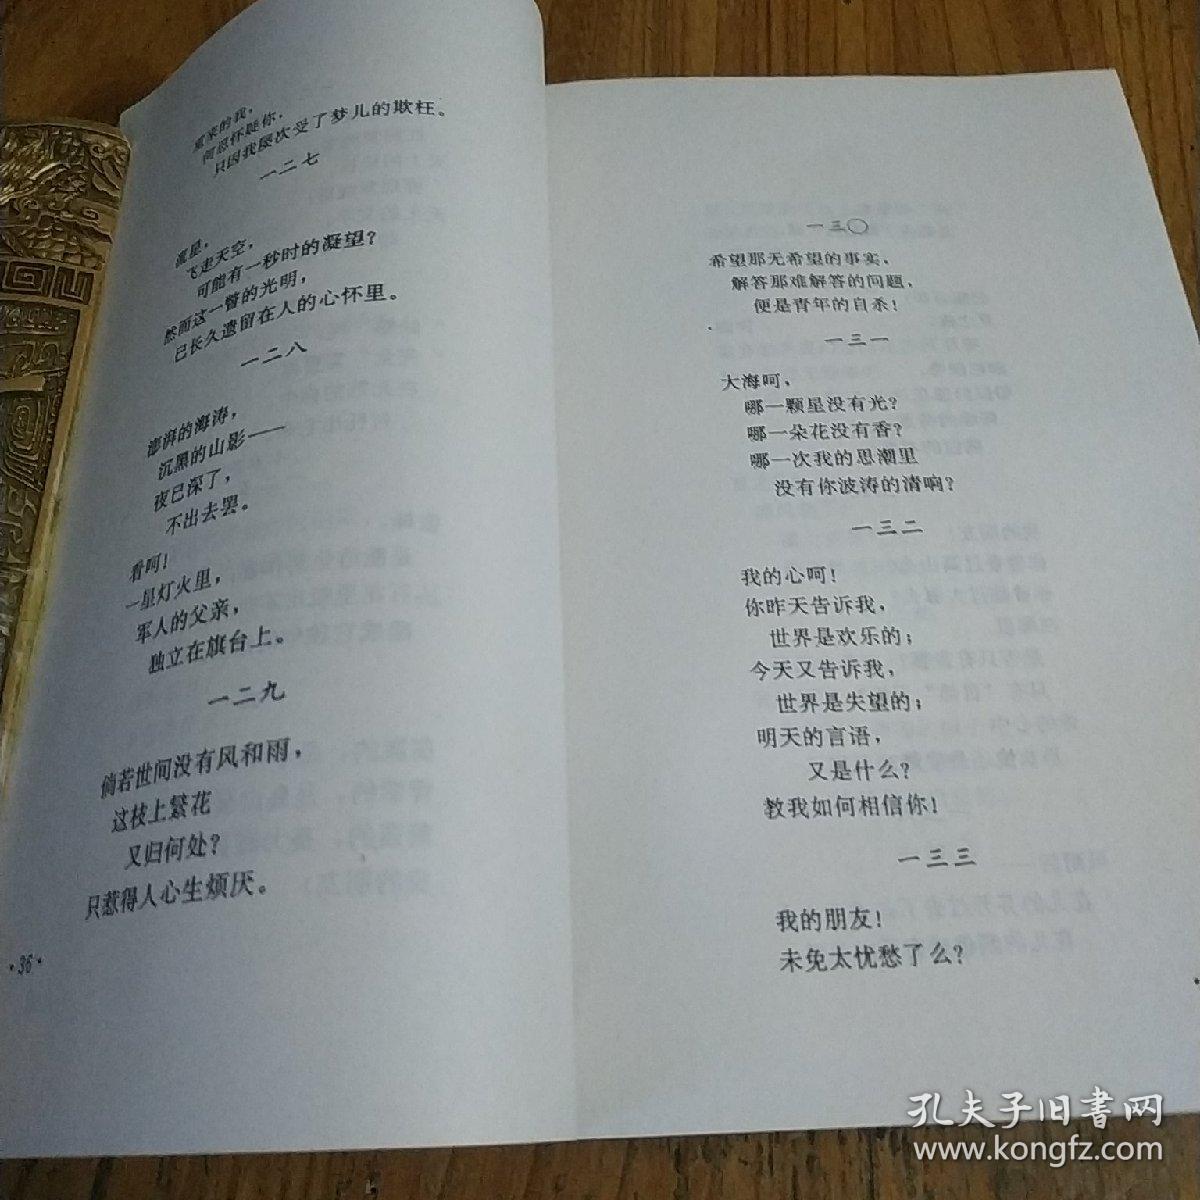 重来的我，
何忍怀疑你，
只因我屡次受了梦儿的欺枉。
一二七
流星，
飞走天空，
可能有一秒时的凝望？
然而这一瞥的光明，
已长久遗留在人的心怀里。
一二八
澎湃的海涛，
沉黑的山影——
夜已深了，
不出去罢。
看呵！
一星灯火里，
军人的父亲，
独立在旗台上。
一二九
倘若世间没有风和雨，
这枝上繁花
又归何处？
只惹得人心生烦厌。
·36·
一三〇
希望那无希望的事实，
解答那难解答的问题，
便是青年的自杀！
一三一
大海呵，
哪一颗星没有光？
哪一朵花没有香？
哪一次我的思潮里
没有你波涛的清响？
一三二
我的心呵！
你昨天告诉我，
世界是欢乐的；
今天又告诉我，
世界是失望的；
明天的言语，
又是什么？
教我如何相信你！
一三三
我的朋友！
未免太忧愁了么？
孔夫子旧书网
www.kongfz.com